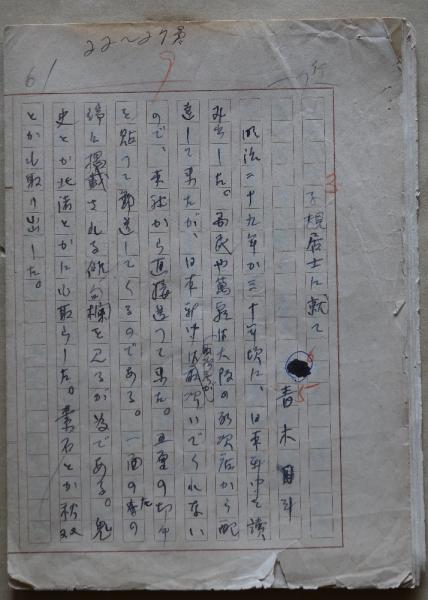 22〜27頁
9
61
一行
3
子規居士に就て
5
青木月斗
明治二十九年か三十年頃に、日本新聞を読
み出した。国民や萬朝は大阪の取次店から配
達して来たが、日本新聞は取次いでくれない
ので、本社から直接送つて来た。五厘の切手
を貼つて郵送してくるのである。一面の真の
端に掲載される俳句欄を見るが為である。鬼
史とか北渚とかに心取らした。漱石とか秋双
とか心取り出した。